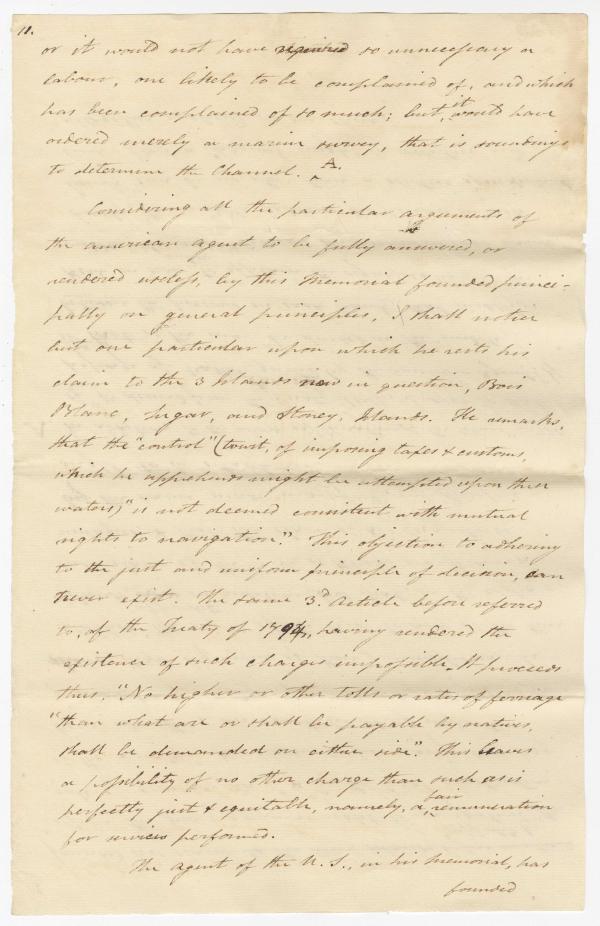 11.
or it would not have required so unnecessary a
labour, one likely to be complained of, and which
has been complained of so much; but, it would have
ordered merely a marine survey, that is soundings
to determine the Channel. A.
Considering all the particular arguments of
the american agent to be fully answered, or
rendered useless, by this Memorial founded princi-
pally on general principles, I shall notice
but one particular upon which he rests his
claim to the 3 Islands now in question, Bois
Blanc, Sugar, and Stoney, Islands. He remarks,
that the "control" (towit, of imposing taxes & customs,
which he apprehends might be attempted upon these
waters) "is not deemed consistent with mutual
rights to navigation." This objection to adhering
to the just and uniform principle of decision, can
never exist. The same 3d. Article before referred
to, of the Treaty of 1794, having rendered the
existence of such charges impossible. It proceeds
thus. "No higher or other tolls or rates of ferriage
"than what are or shall be payable by natives,
shall be demanded on either side". This leaves
a possibility of no other charge than such as is
perfectly just & equitable, namely, a fair remuneration
for services performed.
The agent of the U. S., in his Memorial, has
founded